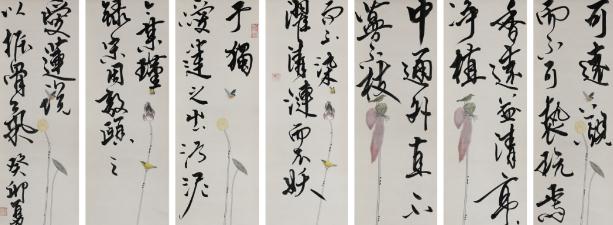 予獨
愛蓮之出污泥
而不染
濯清漣而不妖
中通外直不
蔓不枝
香遠益清亭
淨植
可遠觀
而不可褻玩焉
錄宋周敦頤之
愛蓮說
以振骨氣 癸卯夏